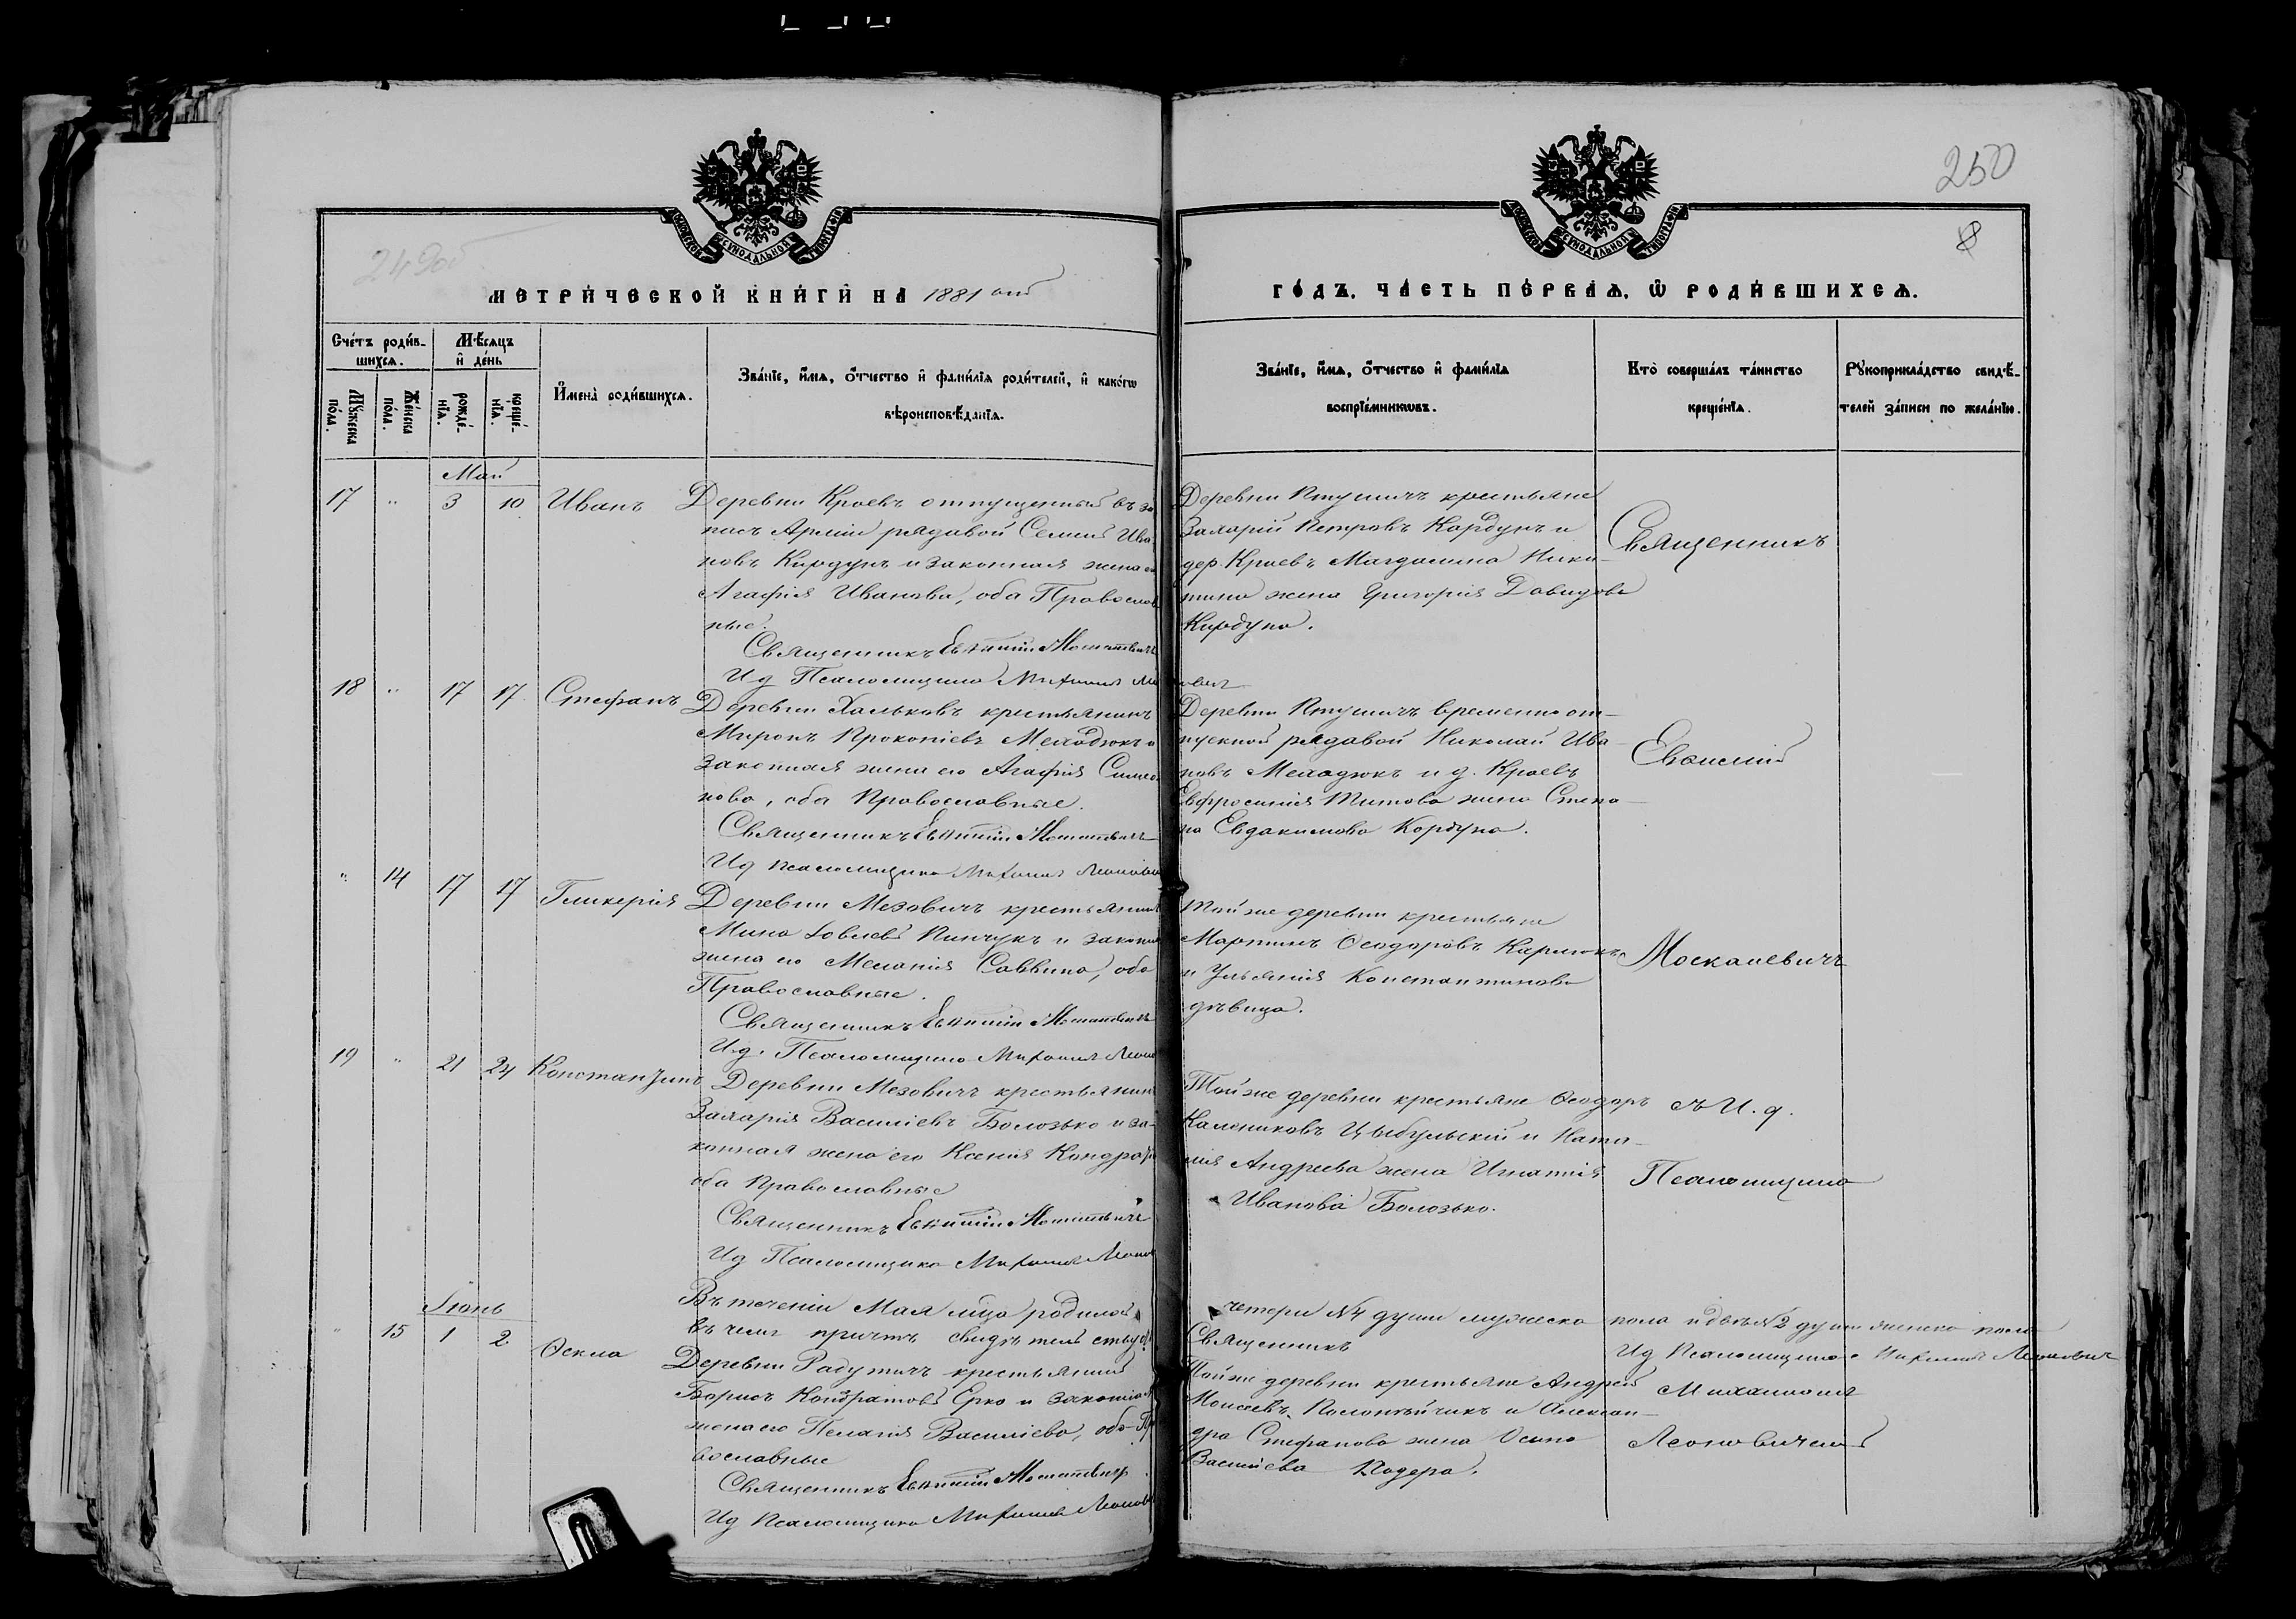 250
8
249 об
МОСКОВСКОЙ СѴНОДАЛЬНОЙ ТИПОГРАФІИ
МОСКОВСКОЙ СѴНОДАЛЬНОЙ ТИПОГРАФІИ
МЕТРИЧЕСКОЙ КНИГИ НА 1881 ый
ГОДЪ, ЧАСТЬ ПЕРВАЯ, Ѡ РОДИВШИХСЯ.
Счетъ родив-
шихся.
Мужеска пола.
Женска пола.
Мѣсяцъ
и день
рожде-
нія.
креще-
нія.
Имена родившихся.
Званіе, имя, отчество и фамилія родителей, и какогѡ
вѣроисповѣданія.
Званіе, имя, отчество и фамилія
воспріемникѡвъ.
Кто совершалъ таинство
крещенія.
Рукоприкладство свидѣ-
телей записи по желанію.
Май
17 " 3 10 Иванъ
Деревни Краевъ отпущенный въ за
пасъ Арміи рядовой Семенъ Ива
новъ Кордунъ и законная жена е
Агафія Иванова, оба Православ
ные.
Священникъ Евѳимій Москалевичъ
И д Псаломщика Михаилъ Леоновичъ
Деревни Птушичъ крестьяне
Захарій Петровъ Кордунъ и
дер. Краевъ Магдалина Ники-
тина жена Григорія Давидова
Кордуна.
Священникъ
18 " 17 17 Стефанъ
Деревни Хальковъ крестьянинъ
Миронъ Прокопіевъ Мелодюкъ и
законная жена его Агафія Симео
нова, оба Православные.
Священникъ Евѳимій Москалевичъ
И д Псаломщика Михаилъ Леонович
Деревни Птушичъ временно от-
пускной рядовой Николай Ива
новъ Мелодюкъ и д. Краевъ
Евфросинія Титова жена Степа-
на Евдокимова Кордуна.
Евѳимій
" 14 17 17 Гликерія
Деревни Мезовичъ крестьянинъ
Мина Іовлевъ Пинчукъ и законн
жена его Меланія Саввина, оба
Православные.
Священникъ Евѳимій Москалевичъ
И. д. Псаломщика Михаилъ Леоно
Той же деревни крестьяне
Мартинъ Ѳеодоровъ Карлюкъ
и Ульянія Константинова
дѣвица.
Москалевичъ
19 " 21 24 Константинъ
Деревни Мезовичъ крестьянин
Захарія ВасиліевъБолозько и за-
конная жена его Ксенія Кондра
оба Православные
Священникъ Евѳимій Москалевичъ
И д Псаломщика Михаилъ Леонов
Той же деревни крестьяне Ѳеодоръ
Калениковъ Цыбульскій и Ната-
лія Андреева жена Игнатія
Иванова Болозько.
съ И. д.
Псаломщика
Въ теченіи Мая м-ца родилось
четыри №4 души мужеска пола и двѣ №2 души женска пола
въ чемъ причтъ свидѣтельству
Священникъ
И д Псаломщика Михаилъ Леонович
Іюнь
" 15 1 2 Ѳекла
Деревни Радутичъ крестьянинъ
Борисъ Кондратовъ Ерко и законная
жена его Пелагія Василіева, оба Пр
вославные
Священникъ Евѳимій Москалевичъ
И д Псаломщика Михаилъ Леонов
Той же деревни крестьяне Андрей
Моисеевъ и Алексан-
дра Стефанова жена Осипа
Василіева
Михаиломъ
Леоновичемъ